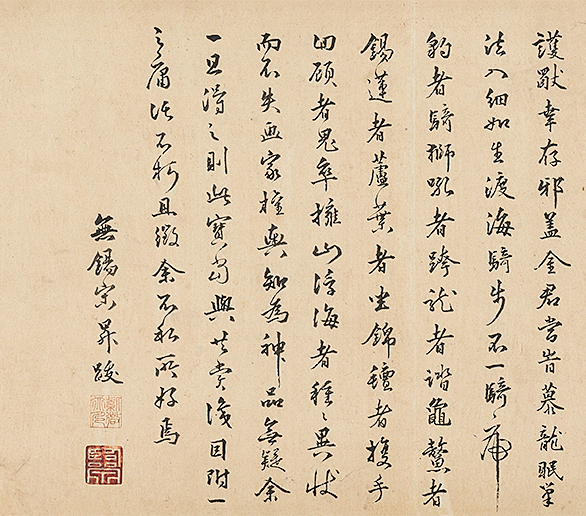 護獸幸存邪蓋金君嘗昔摹龍眠筆
法入細如生渡海騎步不一騎〻虎
豹者騎獅吼者跨龍者踏龜鰲者
錫蓮者蘆葉者坐錦氊者手
回顧者鬼卒擁山浮海者種〻異狀
而不失畫家權輿知為神品無疑余
一旦得之則此寶當與共賞淺目附一
之庸詎不朽且徵余不私所好焉
無錫宋昇跋